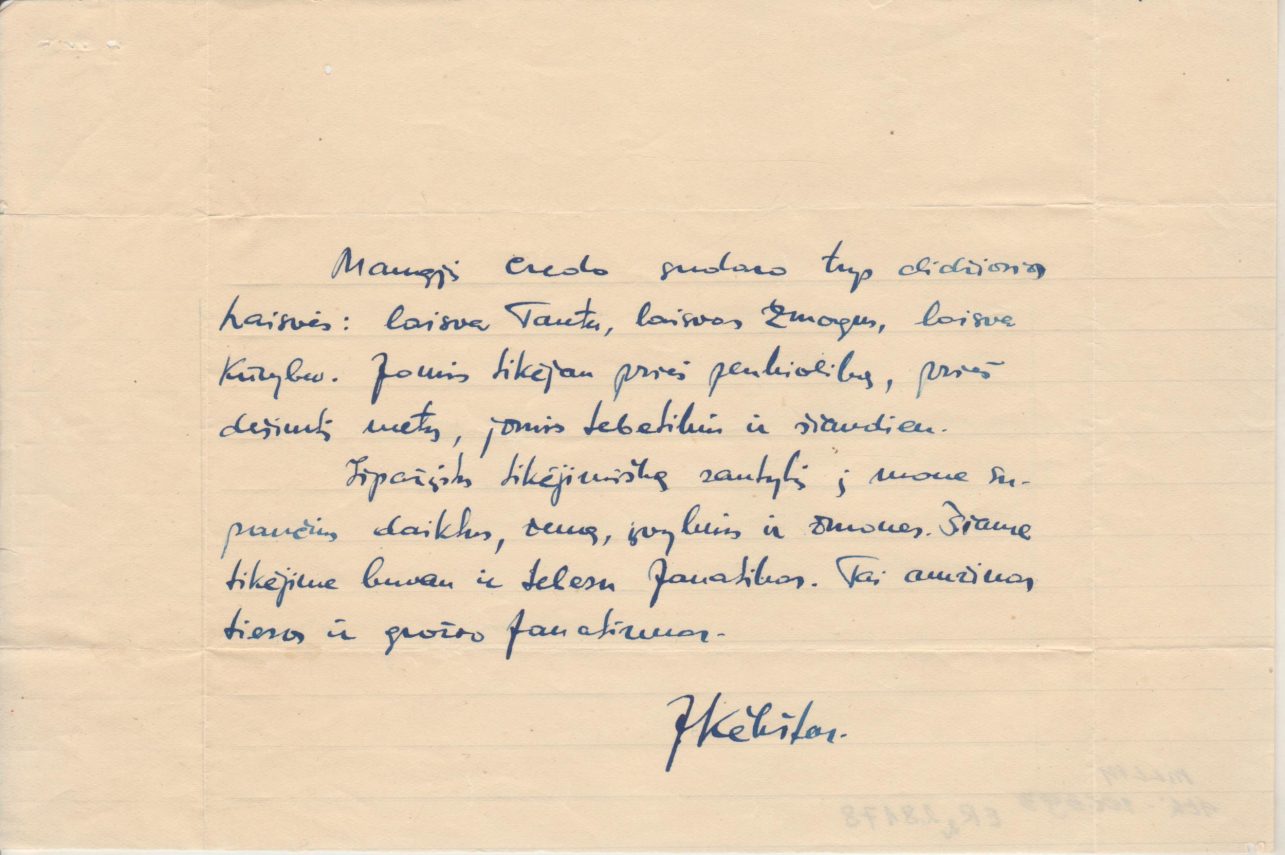 Mangjį credo sudaro trys didžiosios
Laisvės: laisva Tauta, laisvas Žmogus, laisva
Kūryba. Jomis tikėjau prieš penkiolika, prieš
dešimtį metų, jomis tebetikiu ir šiandien.
Išpažįstu tikėjimišką santykį į mane su-
pančius daiktus, meną, įvykius ir žmones. Šiame
tikėjime buvau ir tebesu fanatikas. Tai amžinas
tiesos ir grožio fanatizmas.
J Kėkštas.